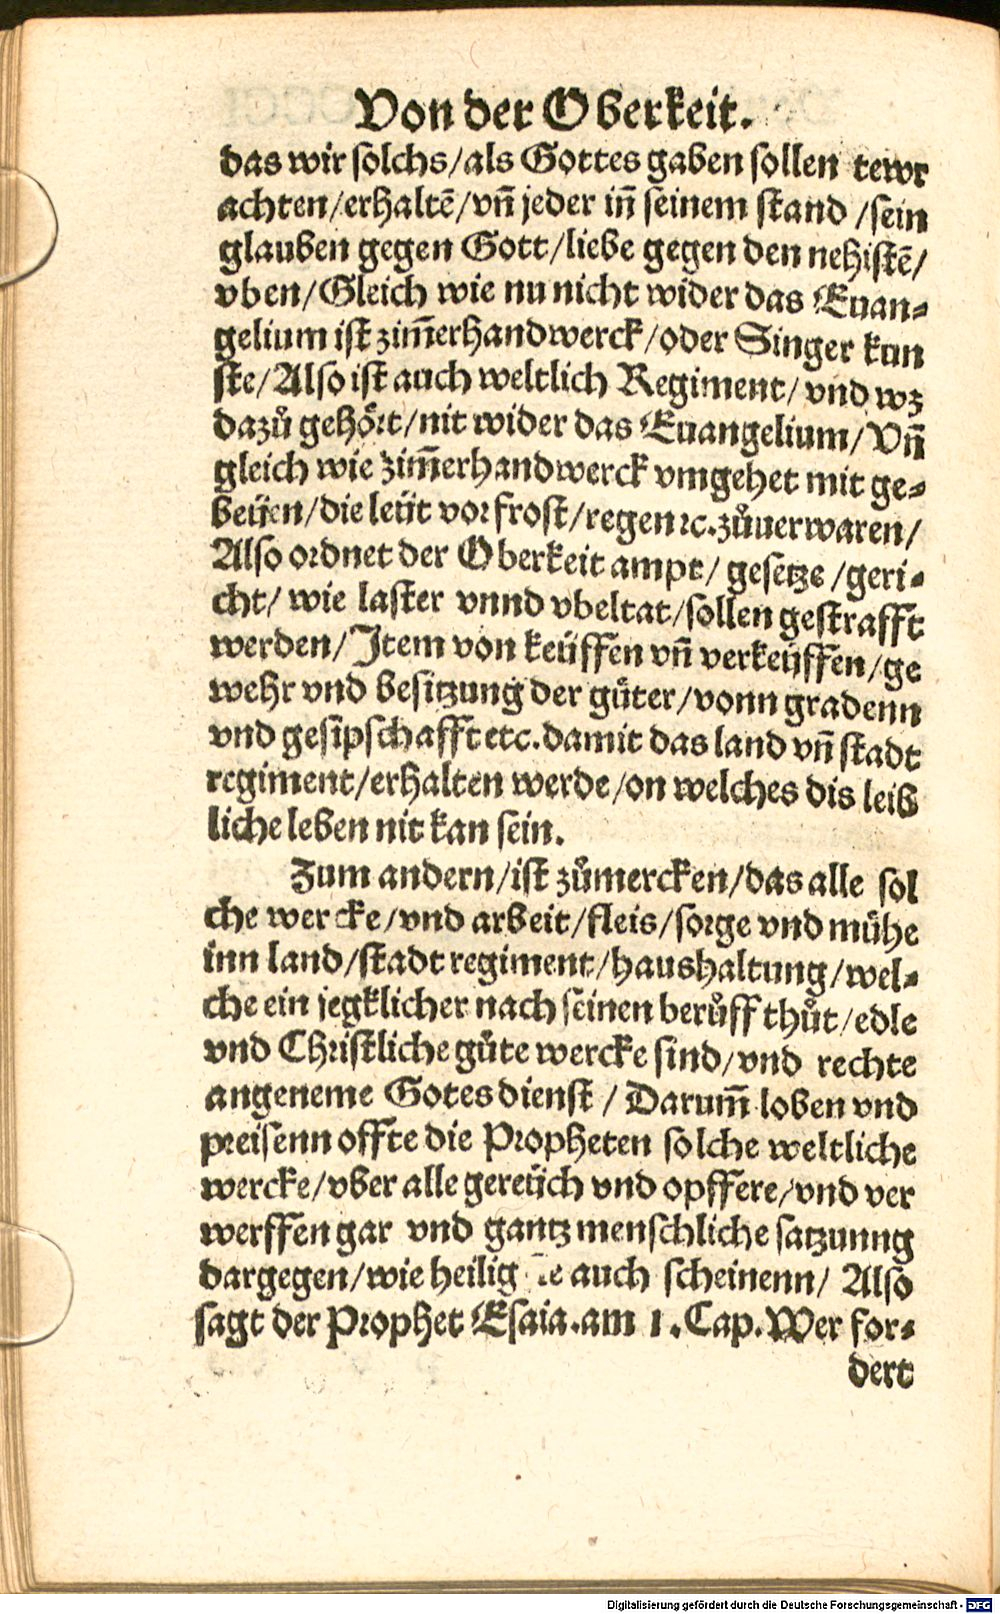 Von der Oberkeit.
das wir solchs/als Gottes gaben sollen tewr
achten/erhaltē/vñ jeder iñ seinem stand /sein
glauben gegen Gott/liebe gegen den nehistē/
vben/Gleich wie nu nicht wider das Euan⸗
gelium ist zim̄erhandwerck/oder Singer kun
ste/Also ist auch weltlich Regiment/ vnd wz
dazů gehört/nit wider das Euangelium/Vñ
gleich wie zim̄erhandwerck vmgehet mit ge⸗
beüen/die leüt vor frost/regen ꝛc.zůuerwaren/
Also ordnet der Oberkeit ampt/ gesetze /geri⸗
cht/ wie laster vnnd vbeltat/sollen gestrafft
werden/Jtem von keüffen vñ verkeüffen/ge
wehr vnd besitzung der güter/vonn gradenn
vnd gesipschafft etc.damit das land vñ stadt
regiment/erhalten werde/on welches dis leib
liche leben nit kan sein.
Zum andern/ist zůmercken/das alle sol
che wercke/vnd arbeit/fleis/sorge vnd mühe
inn land/stadt regiment/haushaltung/wel⸗
che ein jegklicher nach seinen berůff thůt/edle
vnd Christliche güte wercke sind/vnd rechte
angeneme Gotes dienst / Darum̄ loben vnd
preisenn offte die Propheten solche weltliche
wercke/vber alle gereüch vnd opffere/vnd ver
werffen gar vnd gantz menschliche satzunng
dargegen/wie heilig auch scheinenn/ Also
sagt der Prophet Esaia.am 1.Cap.Wer for⸗
dert
Digitalisierung gefördert durch die Deutsche Forschungsgemeinschaft - DFG